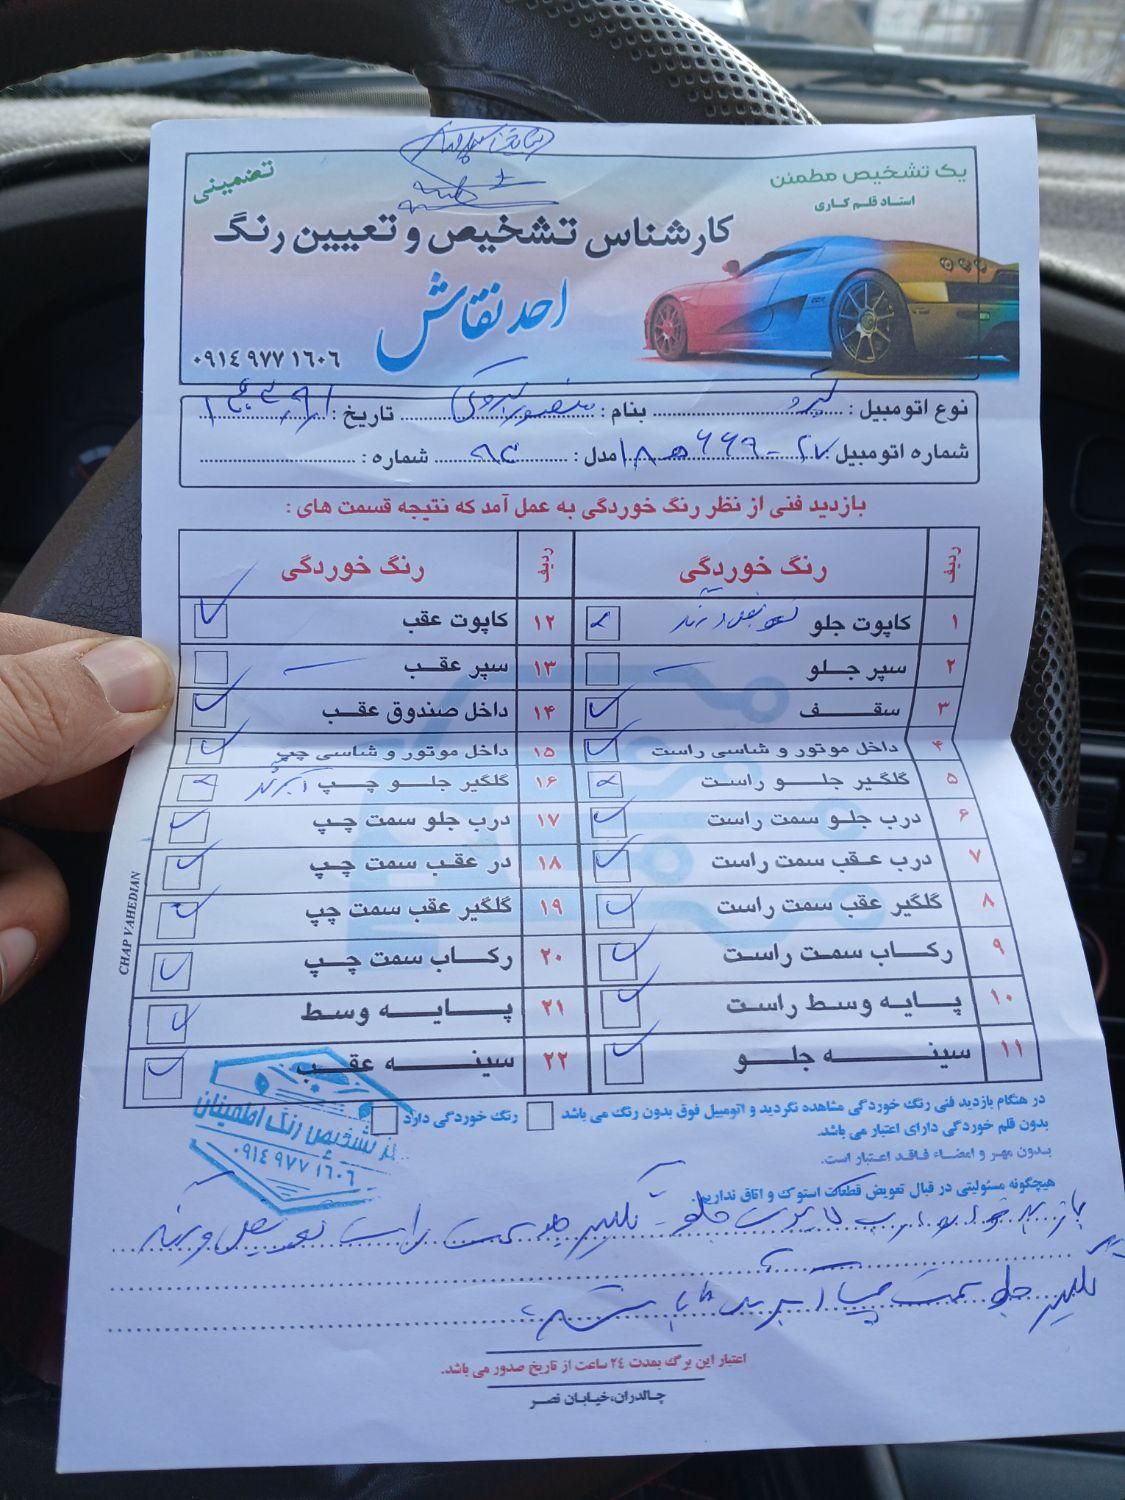 یک تشخیص مطمئن
استاد قلم کاری
تضمینی
کارشناس تشخیص و تعیین رنگ
احد نقاش
۰۹۱۴ ۹۷۷ ۱۶۰۶
نوع اتومبیل : بنام : تاریخ :
شماره اتومبیل مدل : شماره :
بازدید فنی از نظر رنگ خوردگی به عمل آمد که نتیجه قسمت های :
ردیف رنگ خوردگی ردیف رنگ خوردگی
۱ کاپوت جلو ۱۲ کاپوت عقب
۲ سپر جلو ۱۳ سپر عقب
۳ سقف ۱۴ داخل صندوق عقب
۴ داخل موتور و شاسی راست ۱۵ داخل موتور و شاسی چپ
۵ گلگیر جلو راست ۱۶ گلگیر جلو چپ
۶ درب جلو سمت راست ۱۷ درب جلو سمت چپ
۷ درب عقب سمت راست ۱۸ در عقب سمت چپ
۸ گلگیر عقب سمت راست ۱۹ گلگیر عقب سمت چپ
۹ رکاب سمت راست ۲۰ رکاب سمت چپ
۱۰ پایه وسط راست ۲۱ پایه وسط
۱۱ سینه جلو ۲۲ سینه عقب
CHAP VAHEDIAN
در هنگام بازدید فنی رنگ خوردگی مشاهده نگردید و اتومبیل فوق بدون رنگ می باشد رنگ خوردگی دارد
بدون قلم خوردگی دارای اعتبار می باشد.
بدون مهر و امضاء فاقد اعتبار است.
هیچگونه مسئولیتی در قبال تعویض قطعات استوک و اتاق نداریم.
تشخیص رنگ اطمینان
۰۹۱۴ ۹۷۷ ۱۶۰۶
اعتبار این برگ بمدت ۲۴ ساعت از تاریخ صدور می باشد.
چالدران،خیابان نصر